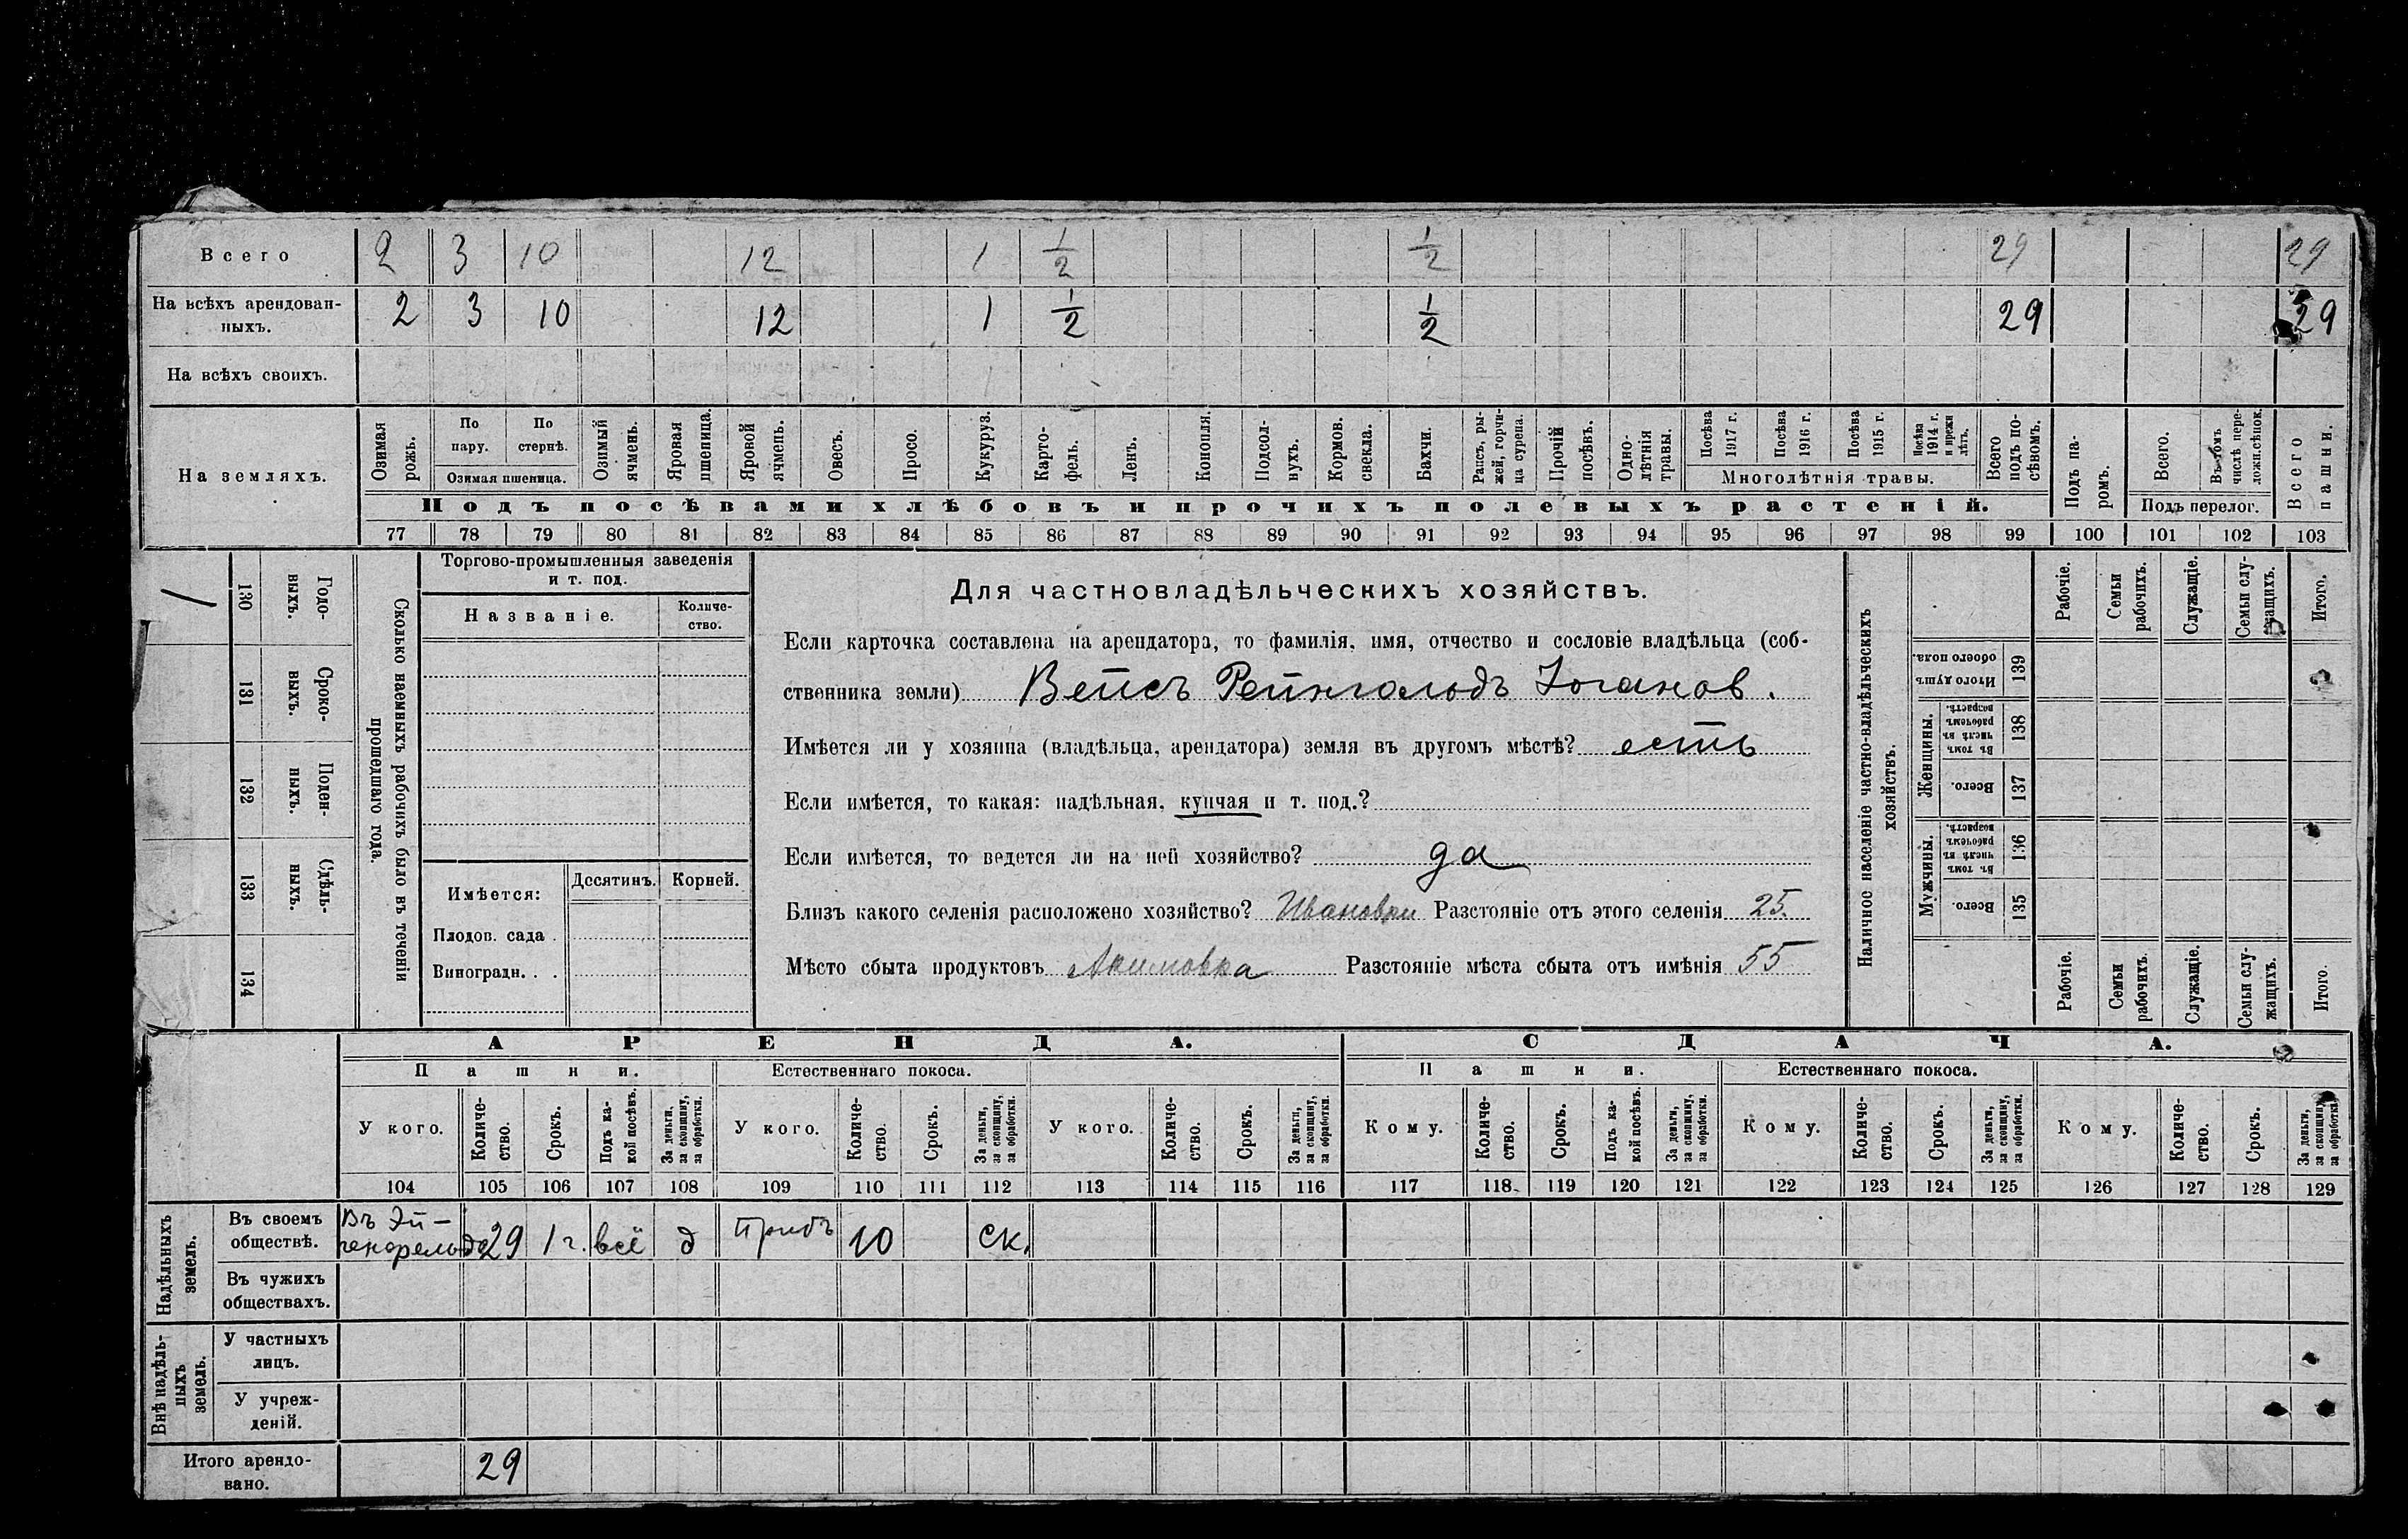 Всего 2 3 10 12 1 1/2 1/2 29 29
На всѣхъ арендован-
ныхъ. 2 3 10 12 1 1/2 1/2 29 29
На всѣхъ своихъ.
На земляхъ.
Озимая рожь.
По пару.
По стернѣ.
Озимая пшеница.
Озимый ячмень.
Яровая пшеница.
Яровой ячмень.
Овесъ.
Просо.
Кукуруз.
Карто-
фель.
Ленъ.
Конопля.
Подсол-
нухъ.
Кормов. свекла.
Бахчи.
Рапсъ, ры-
жей, горчи-
ца сурепа.
Прочій посѣвъ.
Одно-
лѣтнія травы.
Посѣва 1917 г.
Посѣва 1916 г.
Посѣва 1915 г.
Посѣва 1914 г. и прежн лѣтъ.
Многолѣтнія травы.
Всего подъ по-
сѣвомъ.
Подъ па-
ромъ.
Всего.
Въ томъ числѣ пере-
ложн.сѣнок.
Подъ перелог.
Всего пашни.
Подъ посѣвами хлѣбовъ и прочихъ полевыхъ растеній.
77 78 79 80 81 82 83 84 85 86 87 88 89 90 91 92 93 94 95 96 97 98 99 100 101 102 103
Сколько наемныхъ рабочихъ было въ теченіи
прошедшаго года.
Годо-
выхъ.
130
Сроко-
выхъ.
131
Поден-
ныхъ.
132
Сдѣль-
ныхъ.
133
134
Торгово-промышленныя заведенія
и т. под.
Названіе.
Количе-
ство.
Имѣется:
Десятинъ.
Корней.
Плодов. сада .
Виноградн. . .
Для частновладѣльческихъ хозяйствъ.
Если карточка составлена на арендатора, то фамилія, имя, отчество и сословіе владѣльца (соб-
ственника земли) Вейсъ Рейнгольдъ Іоганов.
Имѣется ли у хозяина (владѣльца, арендатора) земля въ другомъ мѣстѣ? есть
Если имѣется, то какая: надѣльная, купчая и т. под.?
Если имѣется, то ведется ли на ней хозяйство? да
Близъ какого селенія расположено хозяйство? Ивановки Разстояніе отъ этого селенія 25.
Мѣсто сбыта продуктовъ Акимовка Разстояніе мѣста сбыта отъ имѣнія 55
Наличное населеніе частно-владѣльческихъ
хозяйствъ.
Рабочіе.
Семьи рабочихъ.
Служащіе.
Семьи слу-
жащихъ.
Итого.
Итого душъ обоего пола.
139
Женщины.
Въ томъ числѣ въ рабочемъ возрастѣ.
138
Всего.
137
Мужчины.
Въ томъ числѣ въ рабочемъ возрастѣ.
136
Всего.
135
Рабочіе.
Семьи рабочихъ.
Служащіе.
Семьи слу-
жащихъ.
Итого.
АРЕНДА.
СДАЧА.
Пашни.
Естественнаго покоса.
Пашни.
Естественнаго покоса.
У кого.
Количе-
ство.
Срокъ.
Подъ ка-
кой посѣвъ.
За деньги, за скопщину, за обработки.
У кого.
Количе-
ство.
Срокъ.
За деньги, за скопщину, за обработки.
У кого.
Количе-
ство.
Срокъ.
За деньги, за скопщину, за обработки.
Кому.
Количе-
ство.
Срокъ.
Подъ ка-
кой посѣвъ.
За деньги, за скопщину, за обработки.
Кому.
Количе-
ство.
Срокъ.
За деньги, за скопщину, за обработки.
Кому.
Количе-
ство.
Срокъ.
За деньги, за скопщину, за обработки.
104 105 106 107 108 109 110 111 112 113 114 115 116 117 118 119 120 121 122 123 124 125 126 127 128 129
Надѣльныхъ
земель.
Въ своемъ
обществѣ.
Въ Эй-
генфельдѣ 29 1 г. всё д 10 ск.
Въ чужихъ
обществахъ.
Внѣ надѣль-
ныхъ
земель.
У частныхъ
лицъ.
У учреж-
деній.
Итого арендо-
вано. 29